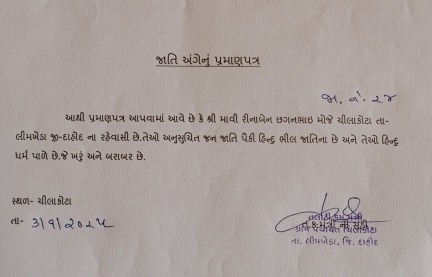 જાતિ અંગેનું પ્રમાણપત્ર
જા. નં. ૨૪
આથી પ્રમાણપત્ર આપવામાં આવે છે કે શ્રી માવી રીનાબેન છગનભાઇ મોજે ચીલાકોટા તા-
લીમખેડા જી-દાહોદ ના રહેવાસી છે.તેઓ અનુસુચિત જન જાતિ પૈકી હિન્દુ ભીલ જાતિના છે અને તેઓ હિન્દુ
ધર્મ પાળે છે.જે ખરૂં અને બરાબર છે.
સ્થળ- ચીલાકોટા
તા- ૩/૧/૨૦૨૫
તલાટી કમ મંત્રી
ગ્રામ પંચાયત ચિલાકોટા
તા. લીમખેડા, જિ. દાહોદ